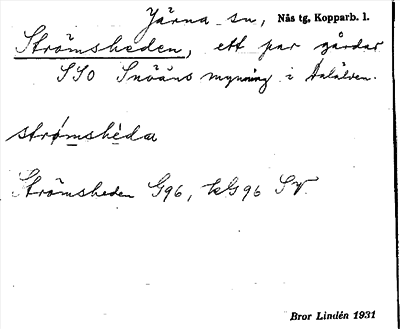 Järna sn, Näs tg, Kopparb. l.
Strömsheden, ett par gårdar
SSO Snöåns mynning i Dalälven.
strø̱mshè̱da
Strömsheden G96, kG96 SV.
Bror Lindén 1931